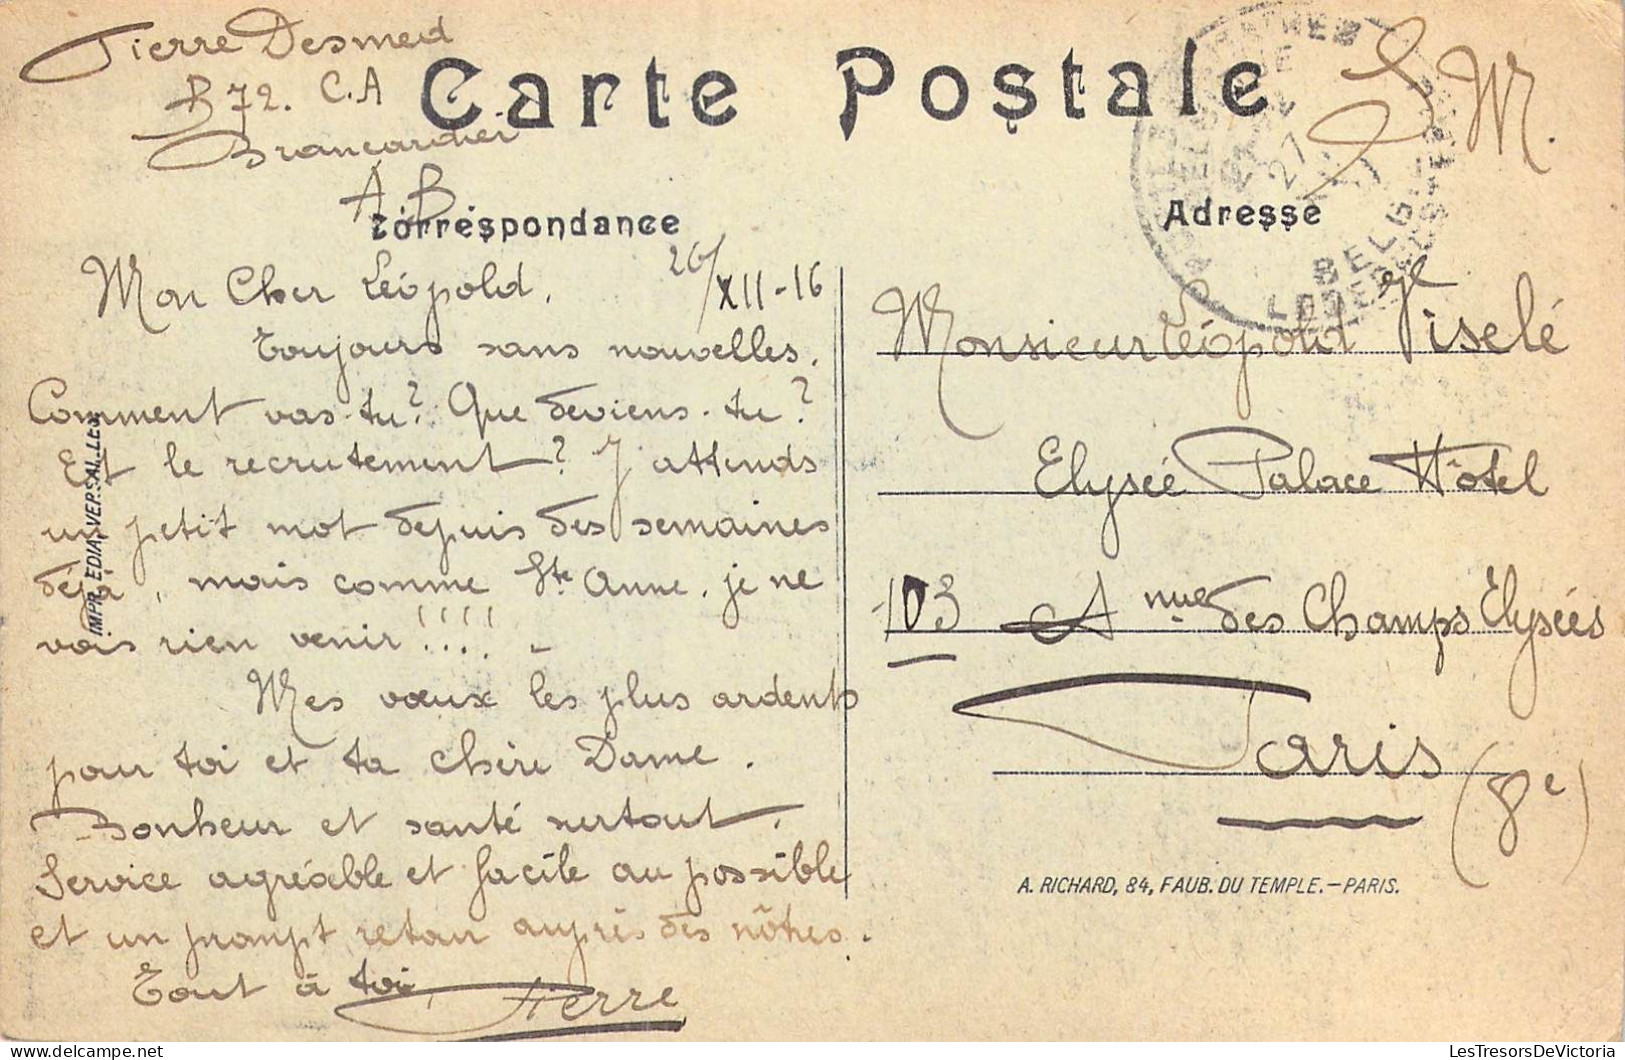 Pierre Desmed
B 72. C.A
Brancardier
A B
Carte Postale
S. M.
Correspondance
Adresse
26/XII-16
Mon Cher Léopold,
Toujours sans nouvelles.
Comment vas-tu? Que deviens-tu?
Et le recrutement? J'attends
un petit mot depuis des semaines
déjà, mais comme Ste Anne, je ne
vois rien venir!!!! -
Mes vœux les plus ardents
pour toi et ta chère Dame.
Bonheur et santé surtout.
Service agréable et facile au possible
et un prompt retour auprès des nôtres.
Tout à toi,
Pierre
IMPR. EDIA, VERSAILLES.
BELG
Monsieur Léopold Piselé
Elysée Palace Hôtel
103 Anue des Champs Elysées
Paris
(8e)
A. RICHARD, 84, FAUB. DU TEMPLE.-PARIS.
LesTresorsDeVictoria